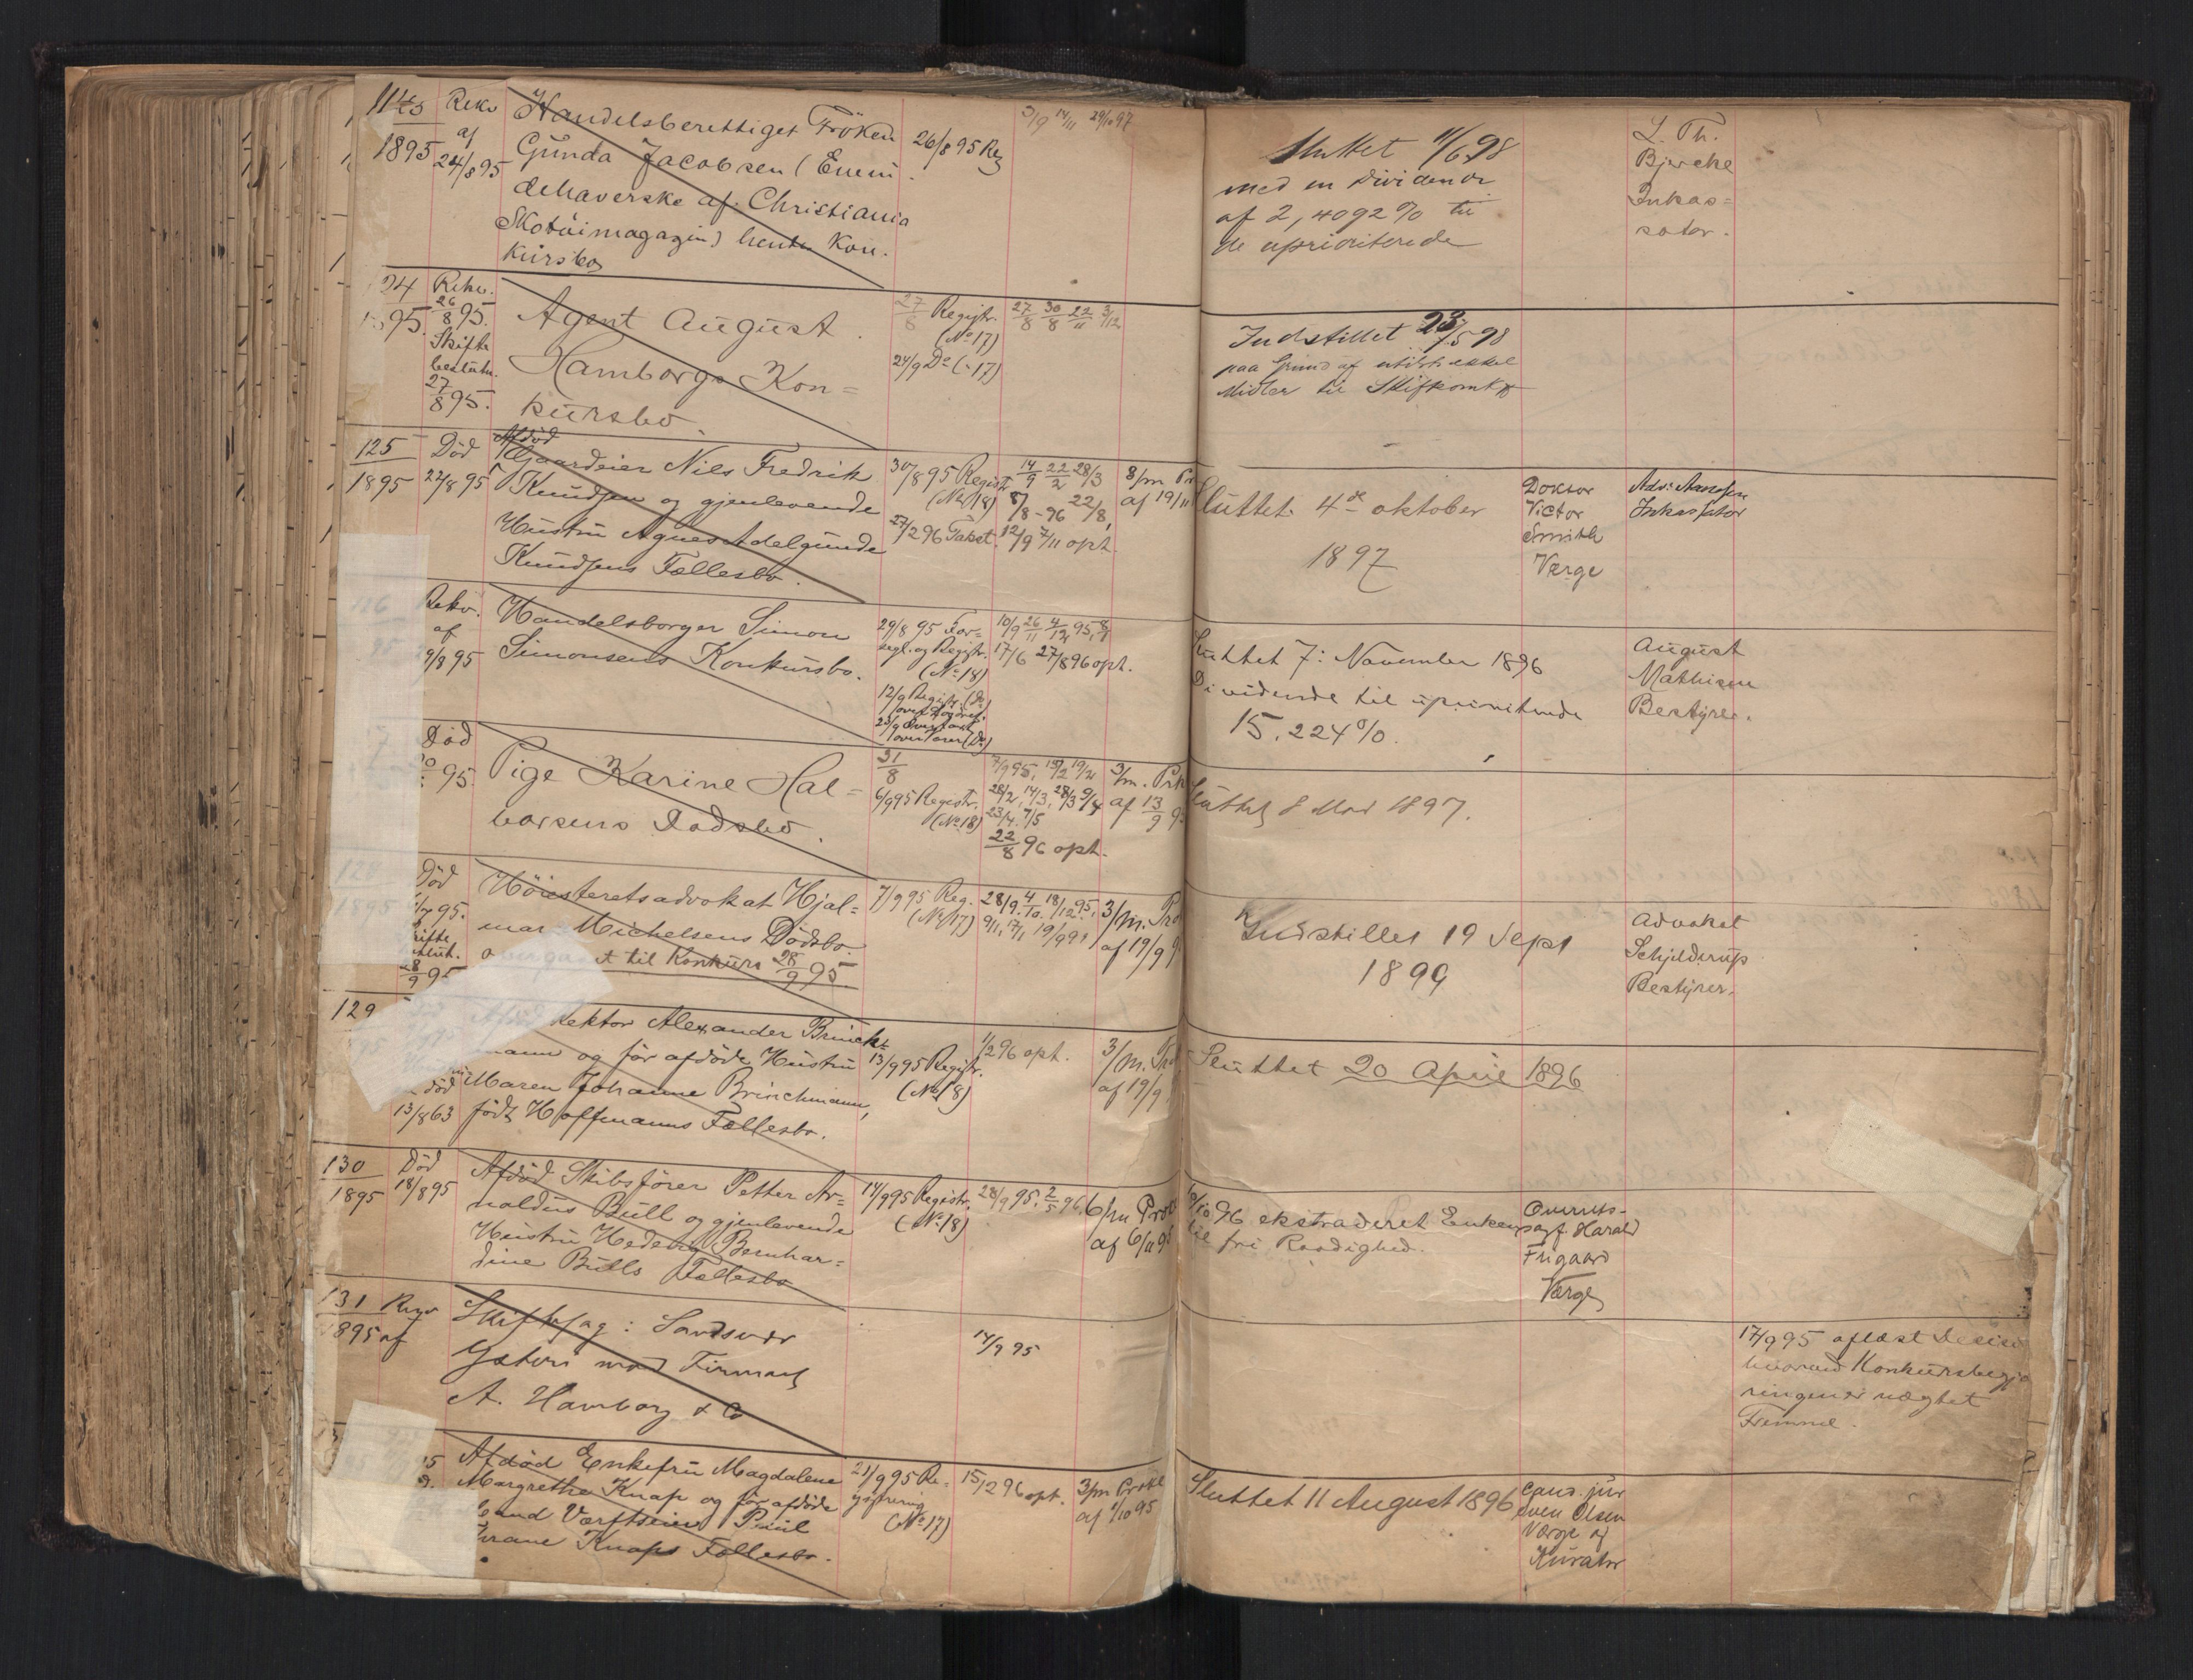 1895
Rekv
af
24/8 95
Handelsberettiget Fröken
Gunda Jacobsen (Enein
dehaverske af Christiania
Skotöimagazin)
Konkursbo
26/8 95 Reg
3/9 14/11 29/10 97
Sluttet 11/6 98
med en Dividende
af 2,4092 % til
de uprioriterede
L. Th.
Bjercke
Inkas=
sator.
24
95
Rekv.
26/8 95.
Skifte
beslutn.
27/8 95.
Agent August
Hamborgs Kon=
kursbo.
27/8 Registr.
(No 17)
24/9 Do (" 17)
27/8 30/8 22/11 3/12
Indstillet 23/5 98
paa Grund af utilstrækkel
Midler til Skifteomk
125
1895
Död
22/8 95
Afdöd
Gaardeier Nils Fredrik
Knudsen og gjenlevende
Hustru Agnes Adelgunde
Knudsens Fællesbo.
30/8 95 Registr
(No 18)
27/2 96 Takst.
14/9 22/2 28/3
8/8 - 96 22/8,
12/9 7/11 opt.
8/m Pr
af 19/11
Sluttet 4de oktober
1897
Doktor
Victor
Smith
Værge
Adv: Aanesen
Inkassator
126
95
Rekv.
af
9/8 95
Handelsborger Simon
Simonsens Konkursbo.
29/8 95 For=
segl. og Registr.
(No 18)
12/9 Registr. (Do)
10/9 26/11 4/12 95, 8/1
17/6 27/8 96 opt.
Sluttet 7: November 1896
Dividende til uprioriterede
15,224 %.
August
Mathisen
Bestyrer.
Död
95
Pige Karine Hal=
vorsens Dödsbo.
31/8
6/9 95 Registr.
(No 18)
7/9 95, 15/2 19/2
28/2, 14/3, 28/3 9/4
23/4. 7/5
22/8 96 opt.
3/m. Prk
af 13/9 9
Sluttet 8 Mai 1897.
128
1895
Död
95.
28/9 95
Höiesteretsadvokat Hjal=
mar Michelsens Dödsbo
overgaaet til Konkurs 28/9 95.
7/9 95 Reg.
(No 17)
28/9. 4/10. 18/12. 95,
9/1, 17/1 19/9 99
3/m. Pro
af 19/9 9
Indstillet 19 Sept
1899
Advokat
Schjelderup
Bestyrer.
129
95
död
13/8 63
Afdöd Rektor Alexander Brinck=
mann og för afdöde Hustru
Maren Johanne Brinchmann,
födt Hoffmanns Fællesbo.
13/9 95 Registr.
(No 18)
1/2 96 opt.
3/m. Pro
af 19/9
Sluttet 20 April 1896
130
1895
Död
18/8 95
Afdöd Skibsförer Petter Ar=
noldus Bull og gjenlevende
Hustru Hedevig Bernhar=
dine Bulls Fællesbo
14/9 95 Registr.
(No 18)
28/9 95. 2/5 96.
6/m Prok
af 6/11 95
10/10 96 ekstraderet Enken
til fri Raadighed.
Overrets-
sagf. Harald
Frigaard
Værge
131
1895
Reqv
af
Skiftesag: Sandsvær
mod Firmaet
A. Hamborg & Co
14/9 95
17/9 95 aflæst Decisi
hvorved Konkursbegjæ
ringen er nægtet
Fremme.
Afdöd Enkefru Magdalene
Margrethe Knap og för afdöde
Mand Værftseier Paul
Krane Knaps Fællesbo.
21/9 95 Re-
gistrering
(No 17)
15/12 96 opt.
3/m Prokl
af 1/10 95
Sluttet 11 August 1896
Cand. jur
Even Olsen
Værge og
Kurator